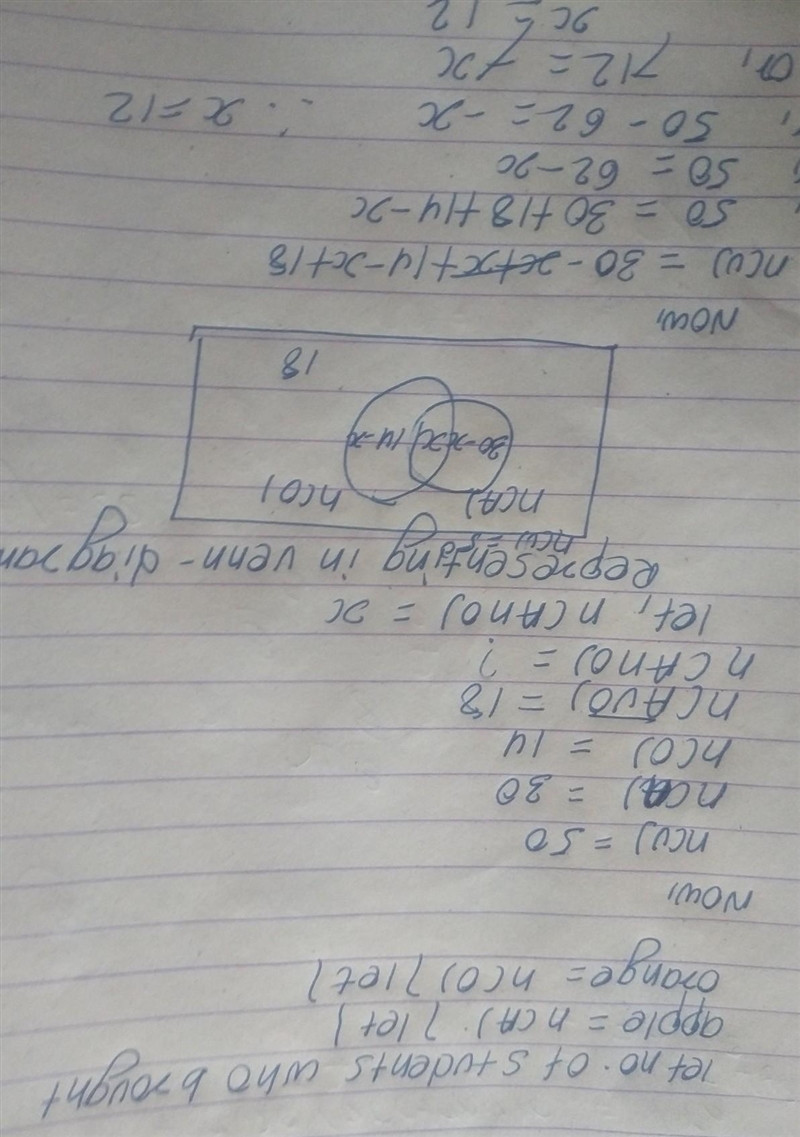 let no. of students who brought
apple = n(A) {let}
orange = n(O) {let}
Now,
n(U) = 50
n(A) = 30
n(O) = 14
n(A∪O) = 18
n(A∩O) = ?
let, n(A∩O) = x
Representing in venn-diagram
n(U) =
n(A) n(O)
30-x x 14-x
18
Now,
n(U) = 30-x+x+14-x+18
50 = 30+18+14-x
50 = 62-x
50-62 = -x ∴ x=12
or, -12 = -x
x = 12